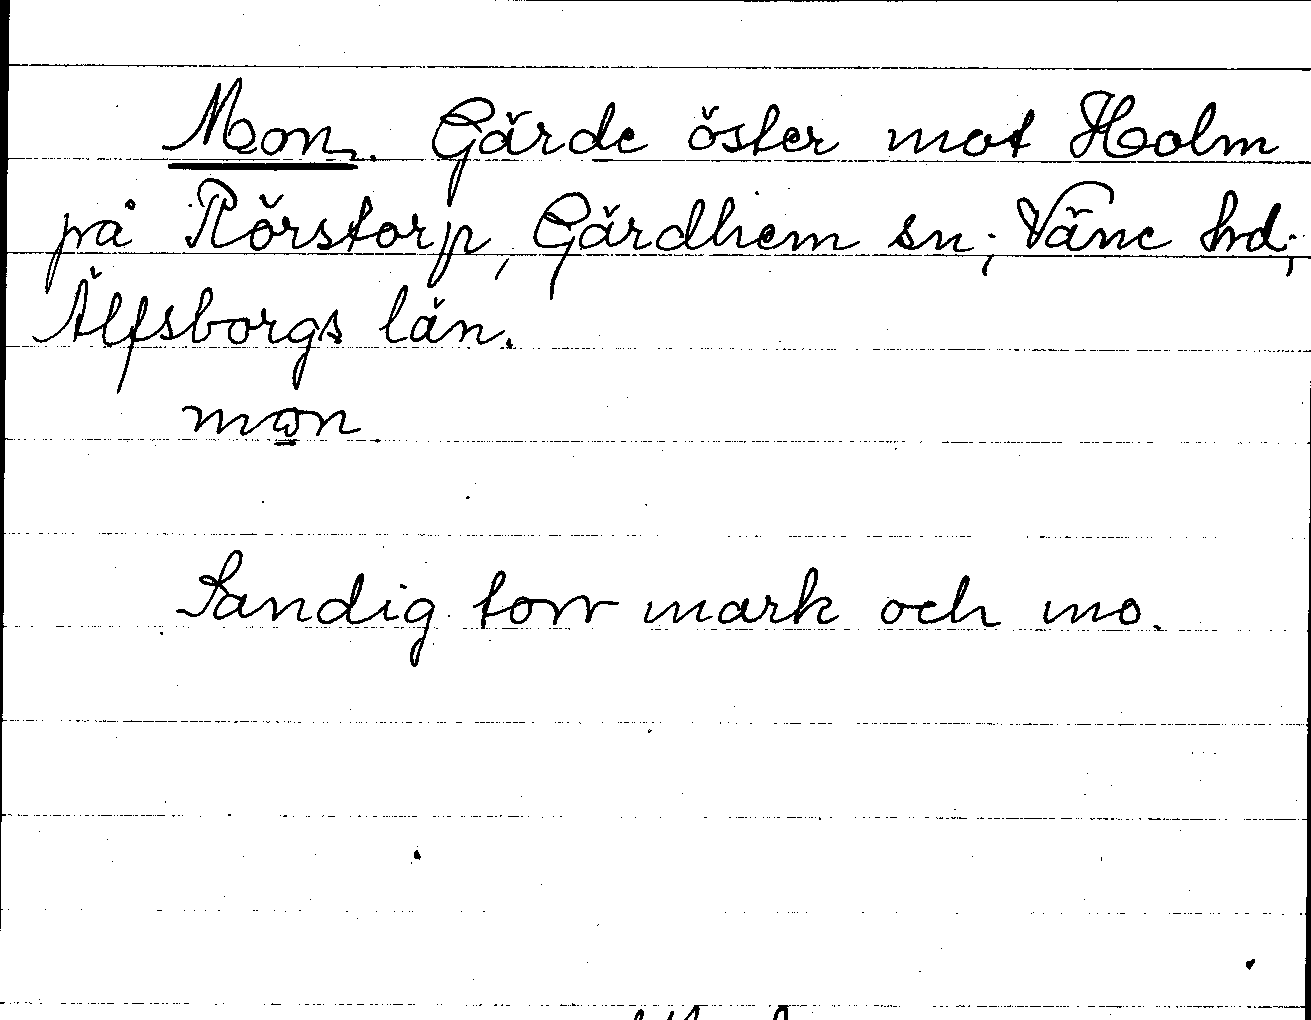 Mon. Gärde öster mot Holm
på Rörstorp, Gärdhem sn; Väne hd;
Älfsborgs län.
mon
Sandig torr mark och mo.